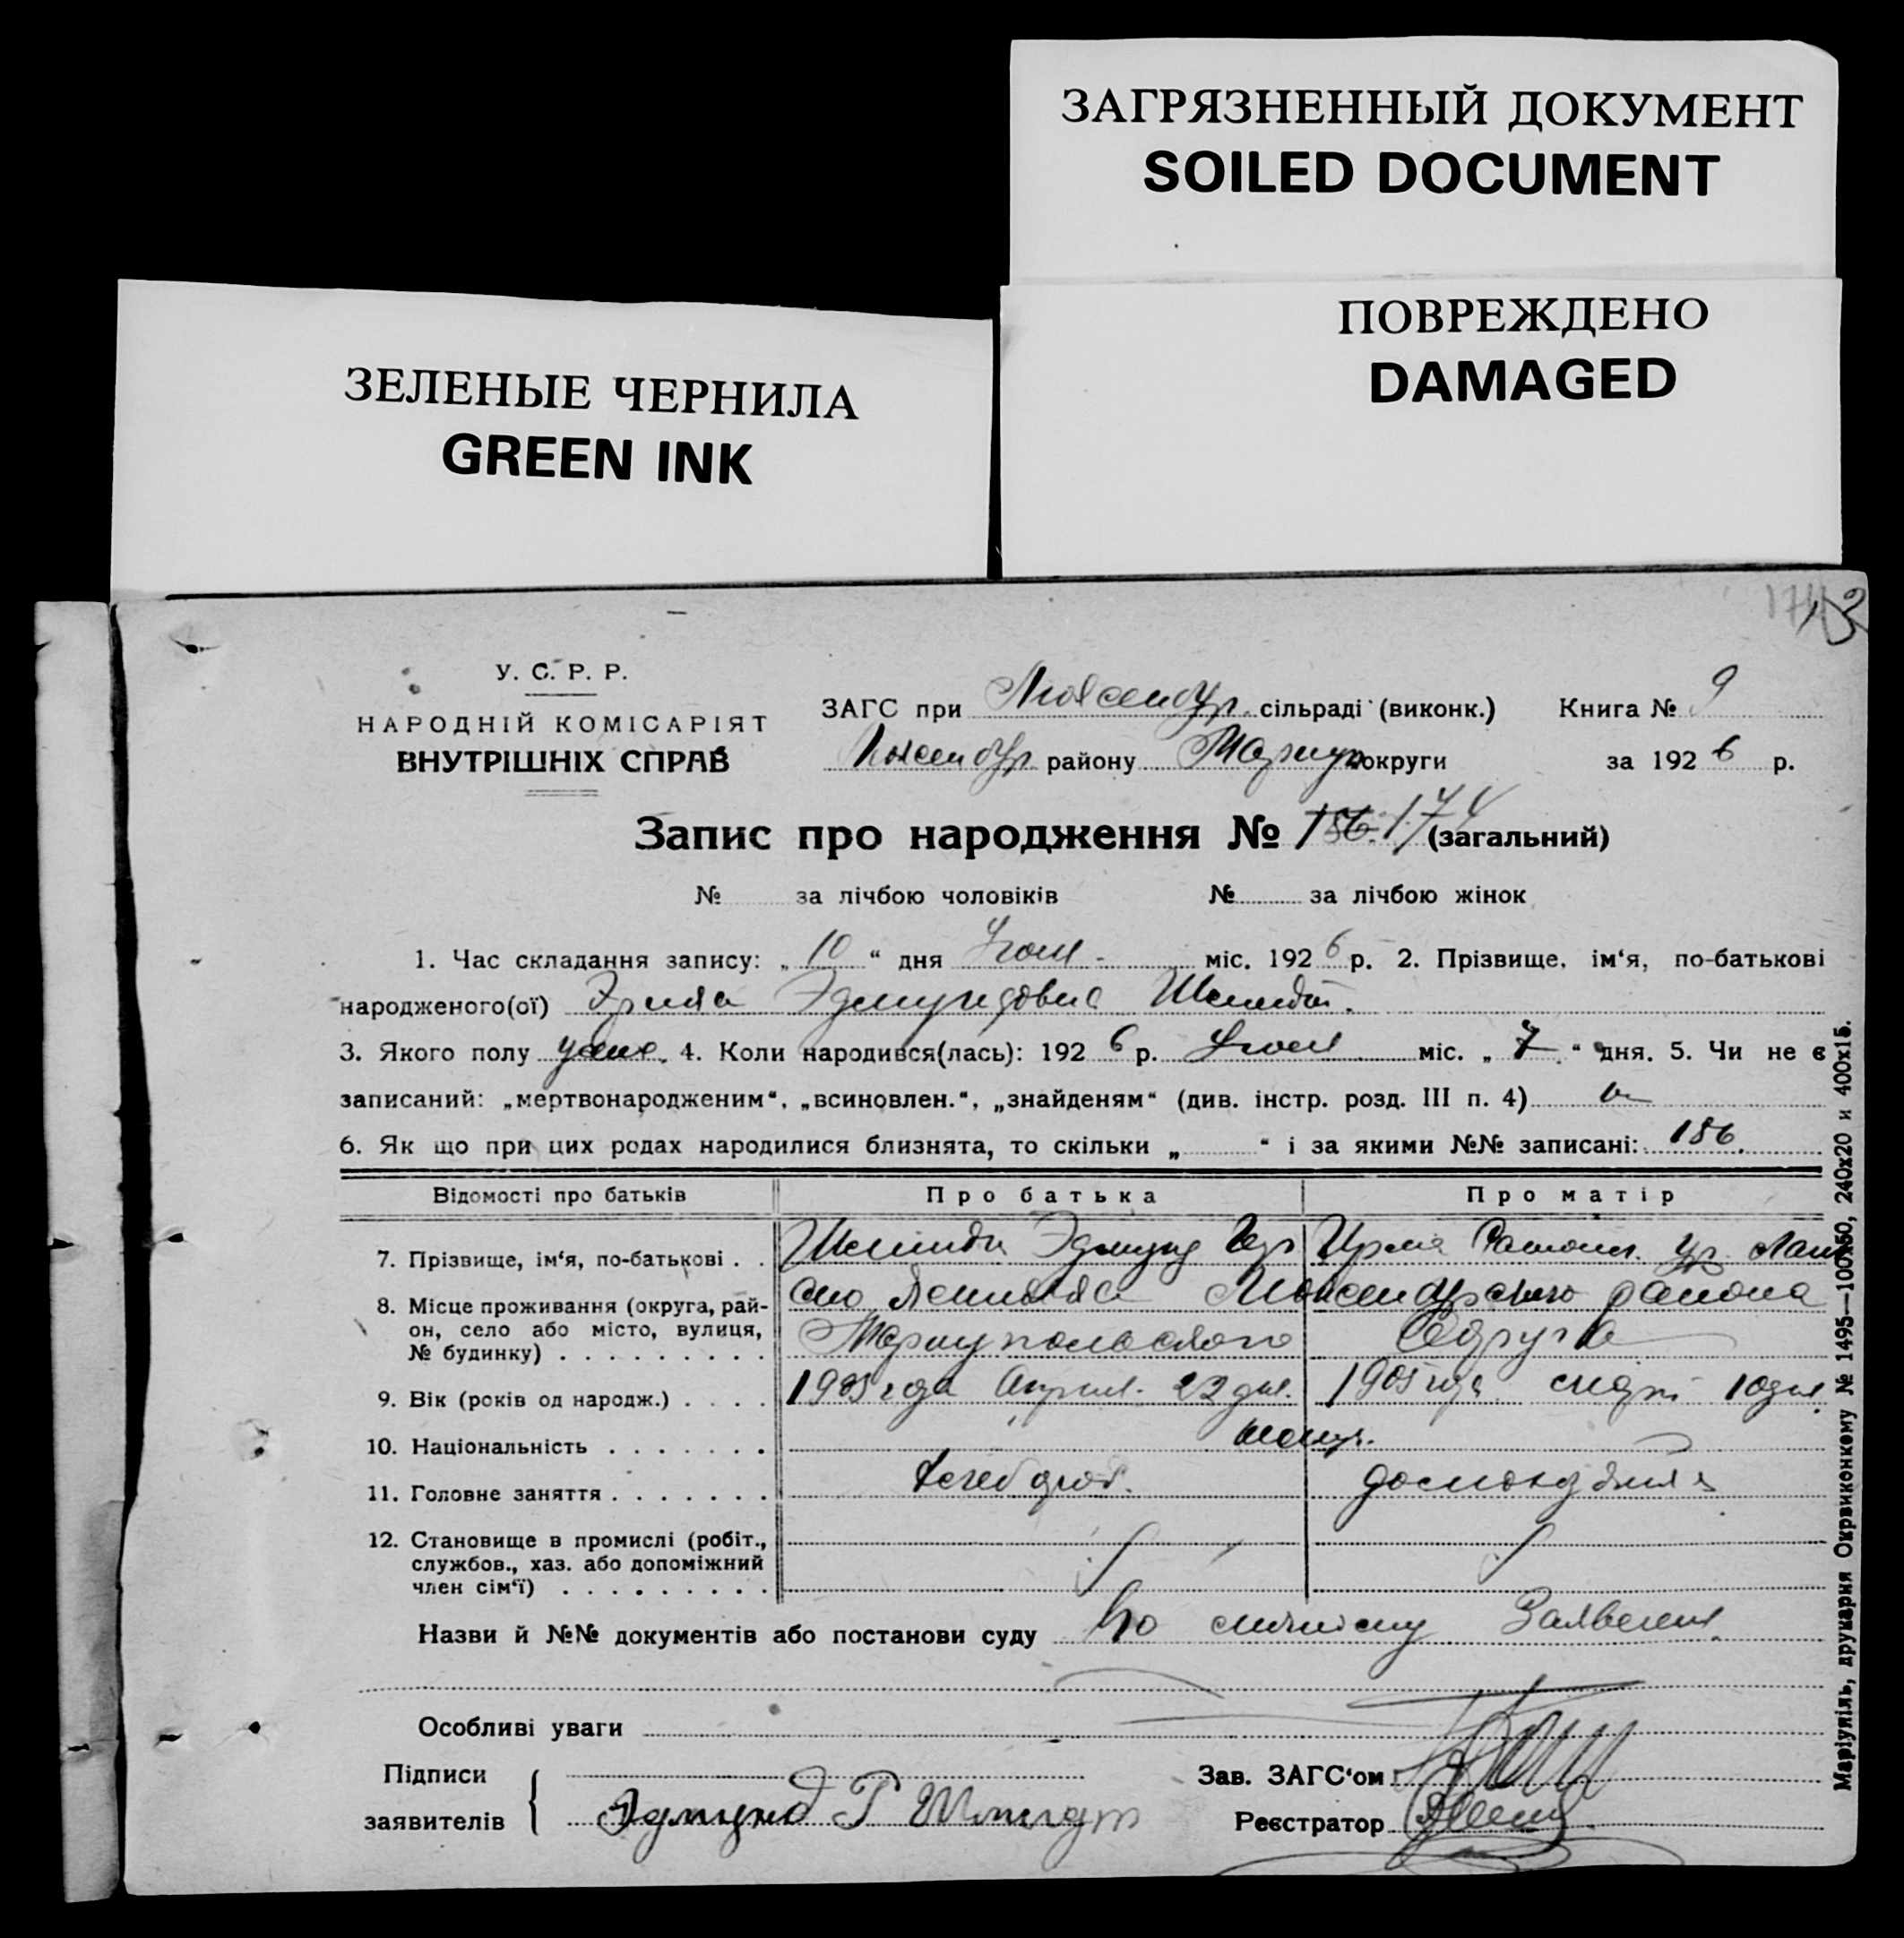 ЗАГРЯЗНЕННЫЙ ДОКУМЕНТ
SOILED DOCUMENT
ПОВРЕЖДЕНО
DAMAGED
ЗЕЛЕНЫЕ ЧЕРНИЛА
GREEN INK
У. С. Р. Р.
НАРОДНІЙ КОМІСАРІЯТ
ВНУТРІШНІХ СПРАВ
ЗАГС при Люксенбур. сільраді (виконк.) Книга № 9
Люксенбур району Мариуп округи за 1926 р.
Запис про народження № 186 174 (загальний)
№ за лічбою чоловіків № за лічбою жінок
1. Час складання запису: „10“ дня міс. 1926 р. 2. Прізвище, ім‘я, по-батькові
народженого(ої) Эдмундовна Шмидт.
3. Якого полу 4. Коли народився(лась): 1926 р. міс. „7“ дня. 5. Чи не є
записаний: „мертвонародженим“, „всиновлен.“, „знайденям“ (див. інстр. розд. III п. 4)
6. Як що при цих родах народилися близнята, то скільки „ “ і за якими №№ записані: 186
Відомості про батьків Про батька Про матір
7. Прізвище, ім‘я, по-батькові . . Шмидт Эдмунд Ирма
8. Місце проживання (округа, рай- Люксембургского района
он, село або місто, вулиця, Мариупольского Округа
№ будинку) . . . . . . . . .
9. Вік (років од народж.) . . . . 1905 года Април. 22 дня. 1905 года
10. Національність . . . . . . . немц.
11. Головне заняття . . . . . . . Хлебороб. домохозяйка
12. Становище в промислі (робіт.,
службов., хаз. або допоміжний
член сім‘ї) . . . . . . . . .
Назви й №№ документів або постанови суду По личному Заявлению
Особливі уваги
Підписи
заявителів Эдмунд Г Шмидт
Зав. ЗАГС‘ом
Реєстратор
Маріупіль, друкарня Окрвиконкому № 1495—100х50, 240х20 и 400х15.